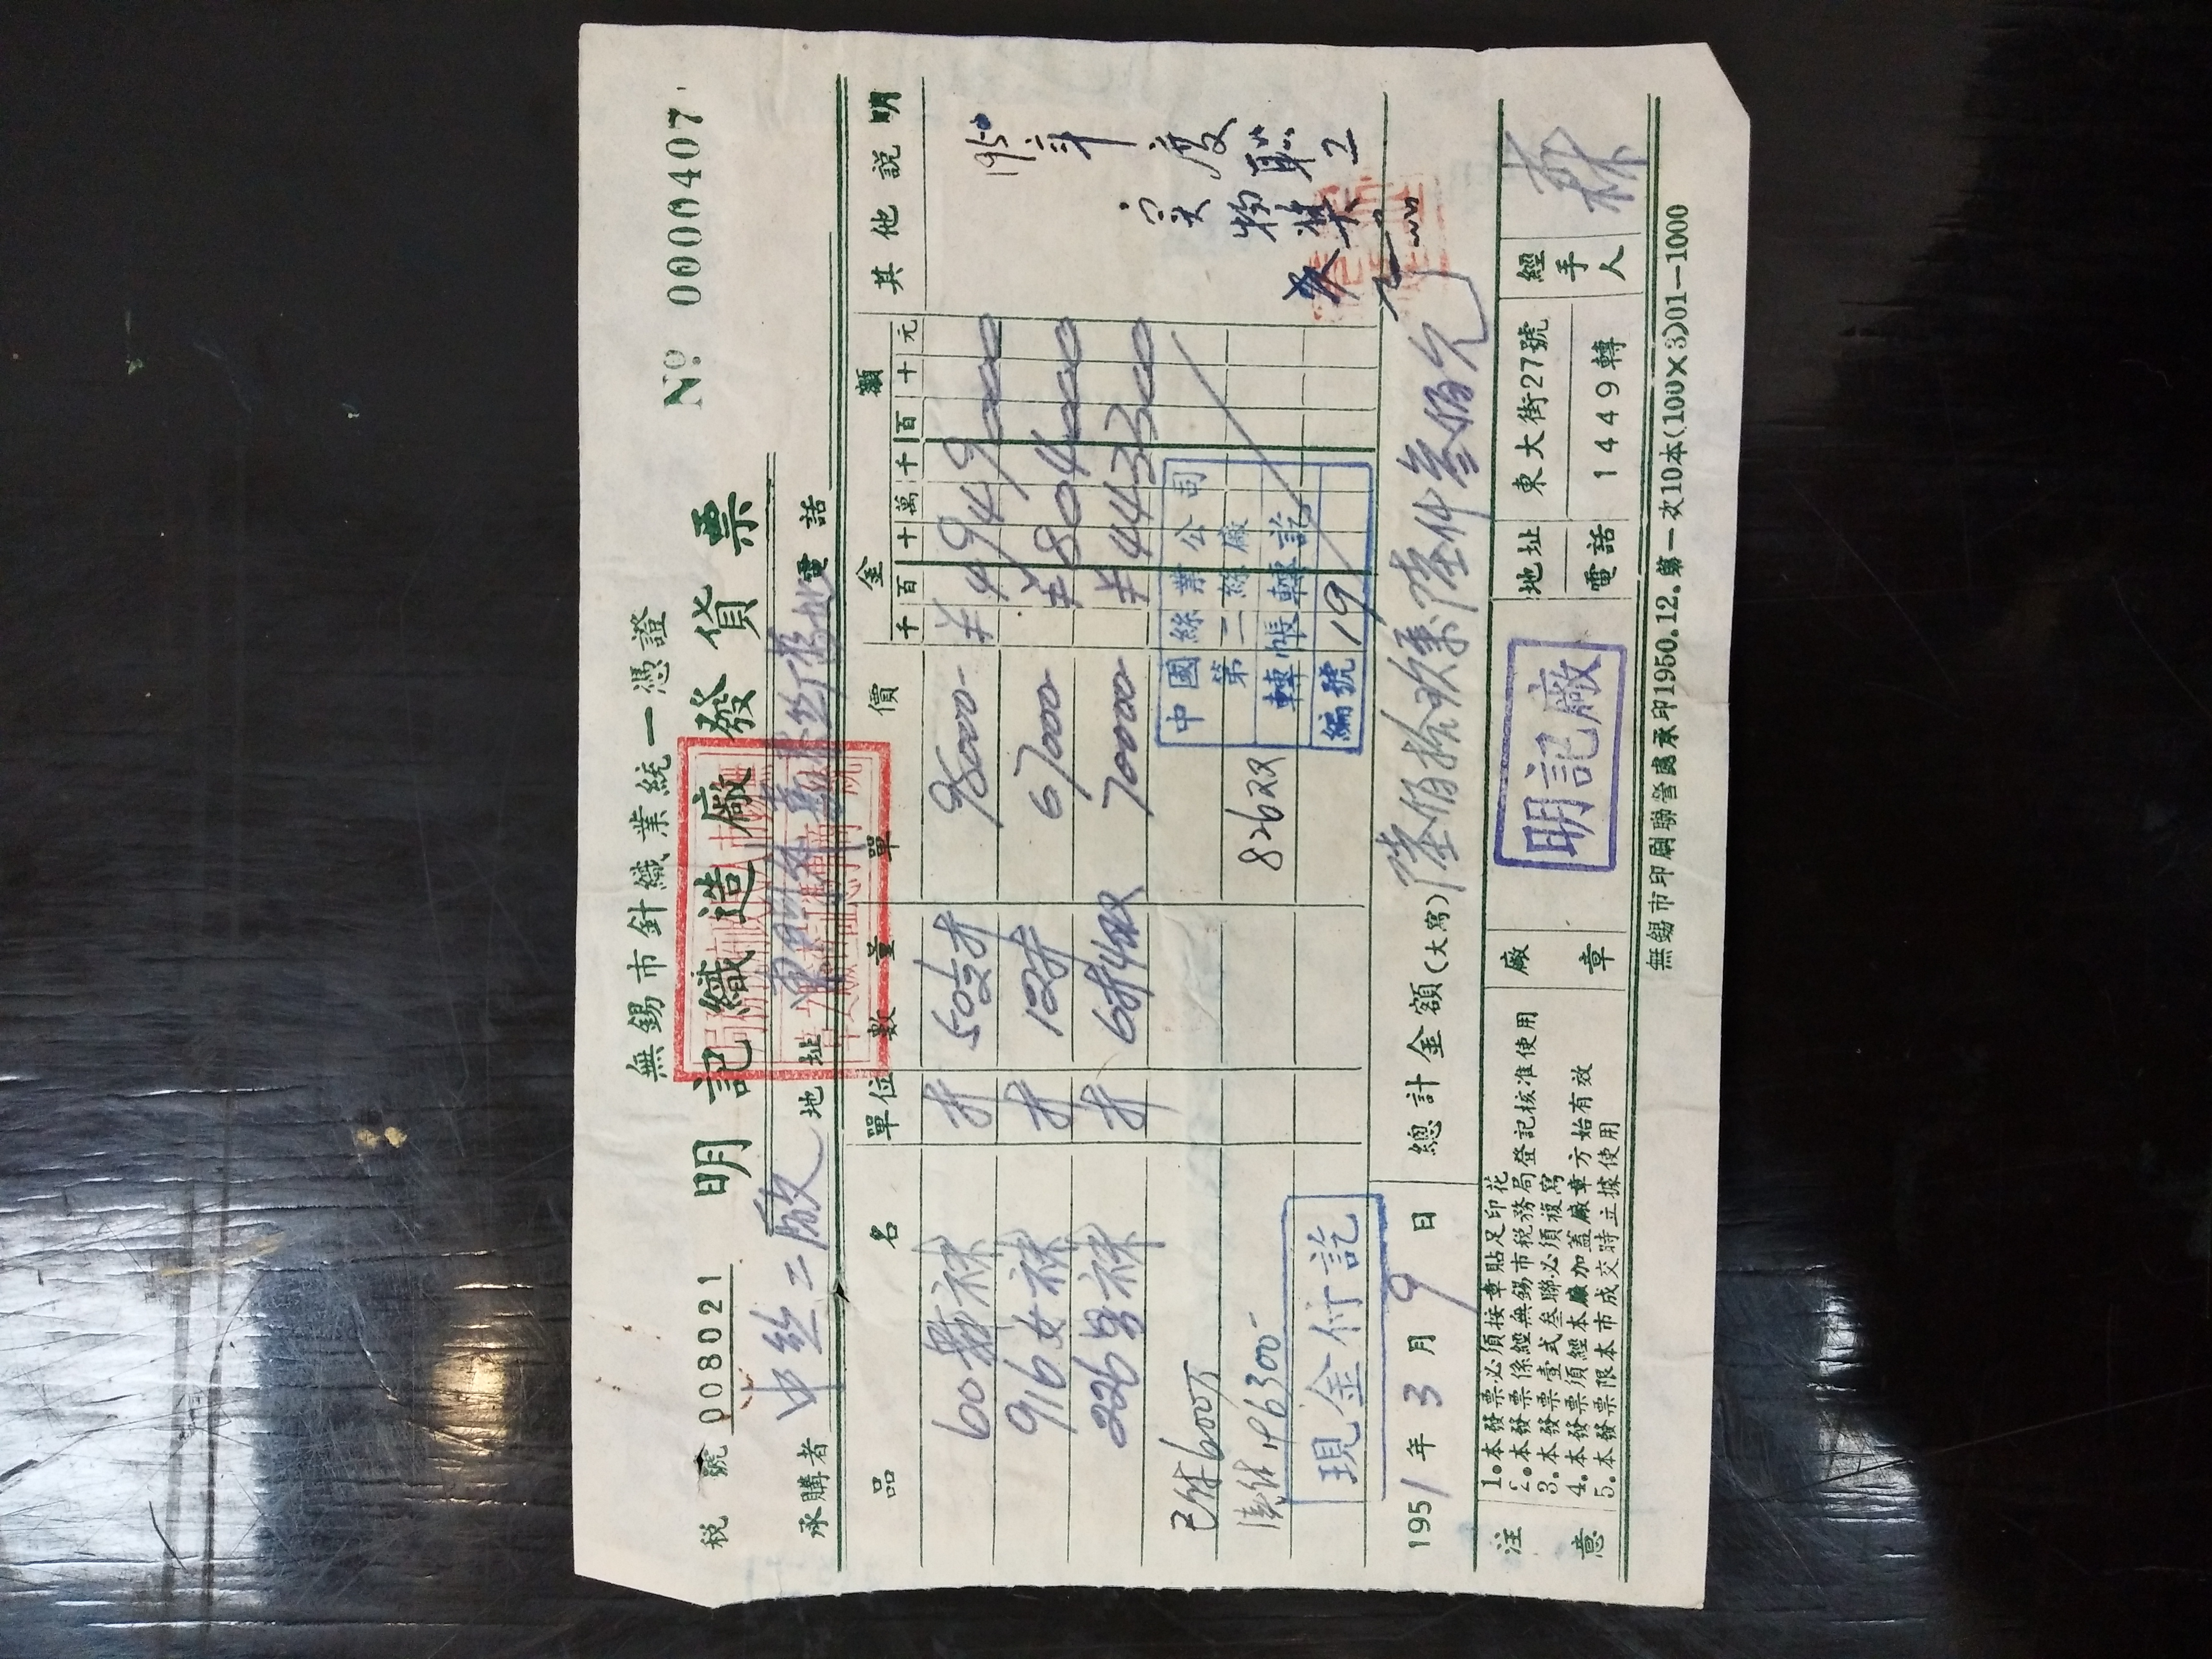 無錫市針織業統一憑證
稅號 008021
明記織造廠發貨票
Nº 0000407
承購者 中丝二厰 地址 電話
品名 單位 數量 單價 金額 其他説明
千百十萬千百十元
600 袜 打 50½打 98000- ¥4949000
916女袜 打 12打 67000 ¥804000
226男袜 打 6打4双 70000 ¥443300
1950年度职工
实物奖
826双
已付600万
196300-
現金付訖
中國絲業公司
第二絲廠
轉帳轉訖
編號 19
1951年3月9日 總計金額(大寫) 陸佰拾玖萬陸仟叁佰元
注意
1.本發票必須按章貼足印花
2.本發票係經無錫市稅務局登記核准使用
3.本發票壹式叁聯必須複寫
4.本發票須經本廠加蓋廠章方始有效
5.本發票限本市成交時立據使用
廠章 明記廠
地址 東大街27號
電話 1449轉
經手人
無錫市印刷聯營處承印1950.12.第一次10本(100×3)01—1000